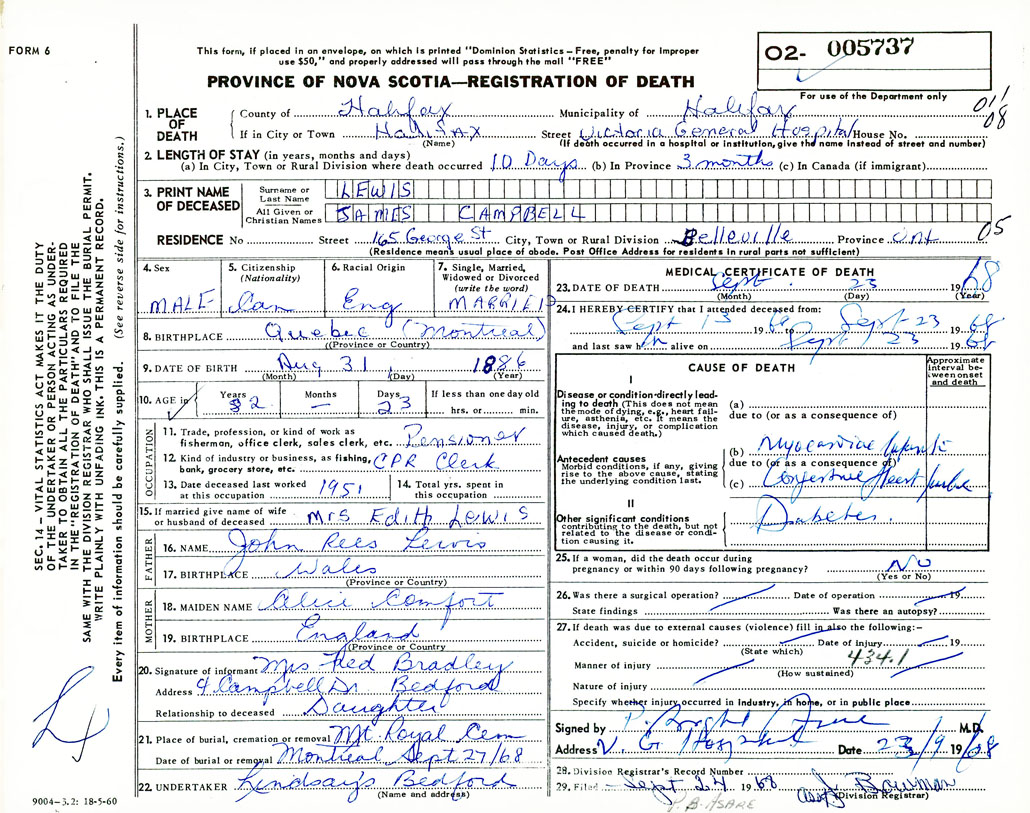 FORM 6
This form, if placed in an envelope, on which is printed "Dominion Statistics – Free, penalty for improper
use $50," and properly addressed will pass through the mail "FREE"
PROVINCE OF NOVA SCOTIA—REGISTRATION OF DEATH
02- 005737
For use of the Department only
011
08
1. PLACE OF DEATH
County of Halifax Municipality of Halifax
If in City or Town HALIFAX Street Victoria General Hospital House No.
(Name) (If death occurred in a hospital or institution, give the name instead of street and number)
2. LENGTH OF STAY (in years, months and days)
(a) In City, Town or Rural Division where death occurred 10 Days (b) In Province 3 months (c) In Canada (if immigrant)
3. PRINT NAME OF DECEASED
Surname or Last Name LEWIS
All Given or Christian Names JAMES CAMPBELL
05
RESIDENCE No Street 165 George St City, Town or Rural Division Belleville Province Ont
(Residence means usual place of abode. Post Office Address for residents in rural parts not sufficient)
4. Sex MALE
5. Citizenship (Nationality) Can
6. Racial Origin Eng
7. Single, Married, Widowed or Divorced (write the word) MARRIED
8. BIRTHPLACE Quebec (Montreal)
(Province or Country)
9. DATE OF BIRTH Aug 31 1886
(Month) (Day) (Year)
10. AGE in Years 82 Months — Days 23 If less than one day old hrs. or min.
OCCUPATION
11. Trade, profession, or kind of work as
fisherman, office clerk, sales clerk, etc. Pensioner
12. Kind of industry or business, as fishing,
bank, grocery store, etc. CPR Clerk
13. Date deceased last worked at this occupation 1951
14. Total yrs. spent in this occupation
15. If married give name of wife
or husband of deceased Mrs Edith Lewis
FATHER
16. NAME John Rees Lewis
17. BIRTHPLACE Wales
(Province or Country)
MOTHER
18. MAIDEN NAME Alice Comfort
19. BIRTHPLACE England
(Province or Country)
20. Signature of informant Mrs Fred Bradley
Address 4 Campbell Dr Bedford
Relationship to deceased Daughter
21. Place of burial, cremation or removal Mt. Royal Cem
Date of burial or removal Montreal Sept 27/68
22. UNDERTAKER Lindsay's Bedford
(Name and address)
MEDICAL CERTIFICATE OF DEATH
23. DATE OF DEATH Sept. 23 1968
(Month) (Day) (Year)
24. I HEREBY CERTIFY that I attended deceased from:
Sept 13 1968 to Sept 23 1968
and last saw him alive on Sept 23 1968
CAUSE OF DEATH
Approximate interval between onset and death
I
Disease or condition directly leading to death (This does not mean
the mode of dying, e.g., heart failure, asthenia, etc. It means the
disease, injury, or complication
which caused death.)
(a)
due to (or as a consequence of)
Antecedent causes
Morbid conditions, if any, giving
rise to the above cause, stating
the underlying condition last.
(b) Myocardial
due to (or as a consequence of)
(c) Congestive Heart failure
II
Other significant conditions
contributing to the death, but not
related to the disease or condition causing it.
Diabetes.
25. If a woman, did the death occur during
pregnancy or within 90 days following pregnancy? No
(Yes or No)
26. Was there a surgical operation? Date of operation 19
State findings Was there an autopsy?
27. If death was due to external causes (violence) fill in also the following:—
Accident, suicide or homicide? Date of injury 19
(State which)
434.1
Manner of injury
(How sustained)
Nature of injury
Specify whether injury occurred in industry, in home, or in public place
Signed by M.D.
Address V. G Hospital Date 23/9 1968
28. Division Registrar's Record Number
29. Filed Sept 24 1968 Bowman
(Division Registrar)
P. B. HSARE
SEC. 14 – VITAL STATISTICS ACT MAKES IT THE DUTY
OF THE UNDERTAKER OR PERSON ACTING AS UNDERTAKER TO OBTAIN ALL THE PARTICULARS REQUIRED
IN THE "REGISTRATION OF DEATH" AND TO FILE THE
SAME WITH THE DIVISION REGISTRAR WHO SHALL ISSUE THE BURIAL PERMIT.
WRITE PLAINLY WITH UNFADING INK. THIS IS A PERMANENT RECORD.
Every item of information should be carefully supplied. (See reverse side for instructions.)
9004–3.2: 18-5-60